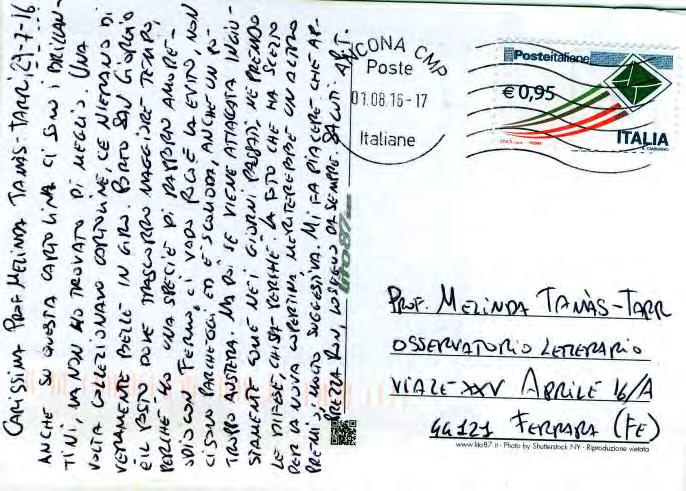 CARISSIMA PROF. MELINDA TAMÀS-TARR, 29-7-16
ANCHE SU QUESTA CARTOLINA CI SONO I BRILLAN-
TINI, MA NON HO TROVATO DI MEGLIO. UNA
VOLTA COLLEZIONAVO CARTOLINE, CE N'ERANO DI
VERAMENTE BELLE IN GIRO. PORTO SAN GIORGIO
È IL POSTO DOVE TRASCORRO MAGGIORE TEMPO,
PERCHÉ HO UNA SPECIE DI RAPPORTO AMORE-
ODIO CON FERMO, CI VADO POCO E LA EVITO, NON
CI SONO PARCHEGGI ED È SCOMODA, ANCHE UN PO'
TROPPO AUSTERA. MA POI SE VIENE ATTACCATA INGIU-
STAMENTE COME NEI GIORNI PASSATI, NE PRENDO
LE DIFESE, CHISSÀ PERCHÉ. LA FOTO CHE HA SCELTO
PER LA NUOVA COPERTINA MERITEREBBE UN ALTRO
PREMIO, MOLTO SUGGESTIVA. MI FA PIACERE CHE AP-
PREZZA LO SEGUO DA SEMPRE. SALUTI.
ANCONA CMP
Poste
01.08.16-17
Italiane
Posteitaliane
€0,95
ITALIA
lito87
PROF. MELINDA TAMÀS-TARR
OSSERVATORIO LETTERARIO
VIALE XXV APRILE 16/A
44121 FERRARA (FE)
www.lito87.it - Photo by Shutterstock NY - Riproduzione vietata